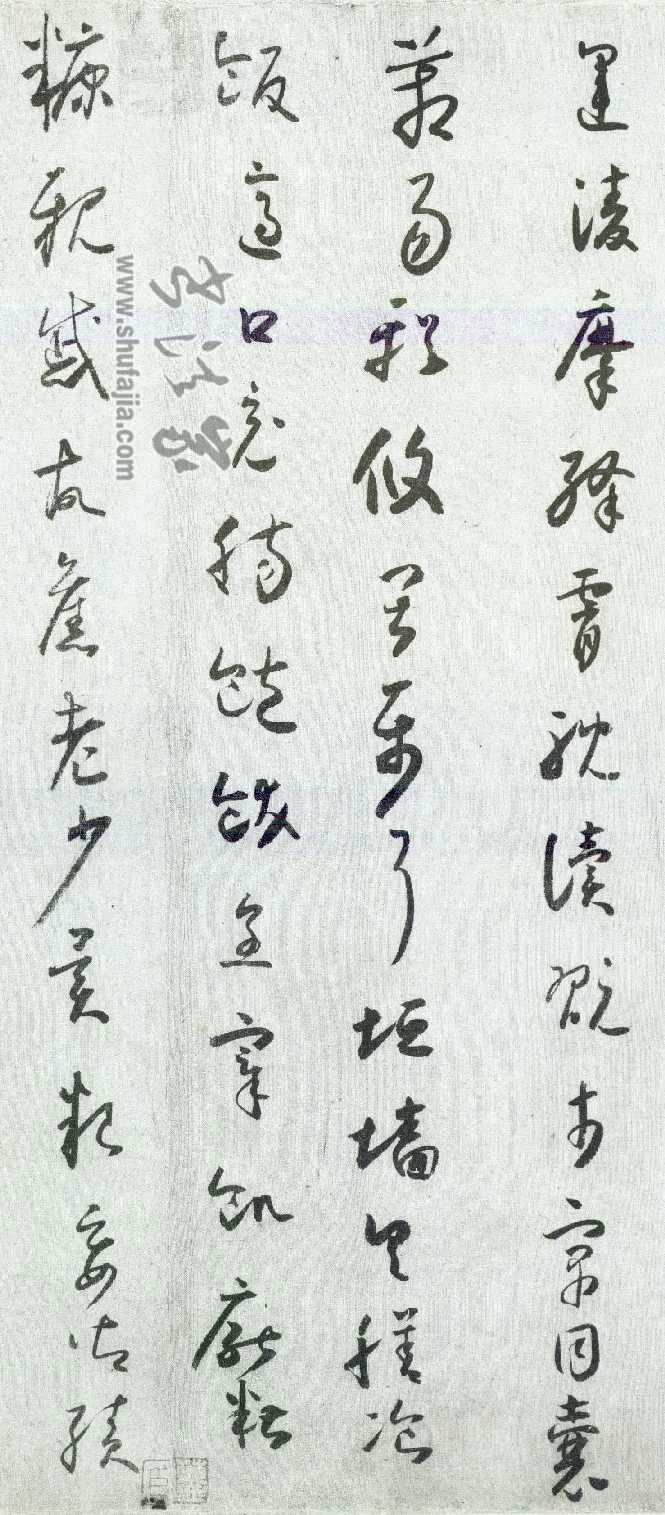 運凌摩絳霄耽讀翫市寓目囊
箱易輶攸畏屬耳垣墻具膳飡
飯適口充腸飽飫烹宰飢厭糟
糠親戚故舊老少異糧妾御績
书法家
www.shufajia.com